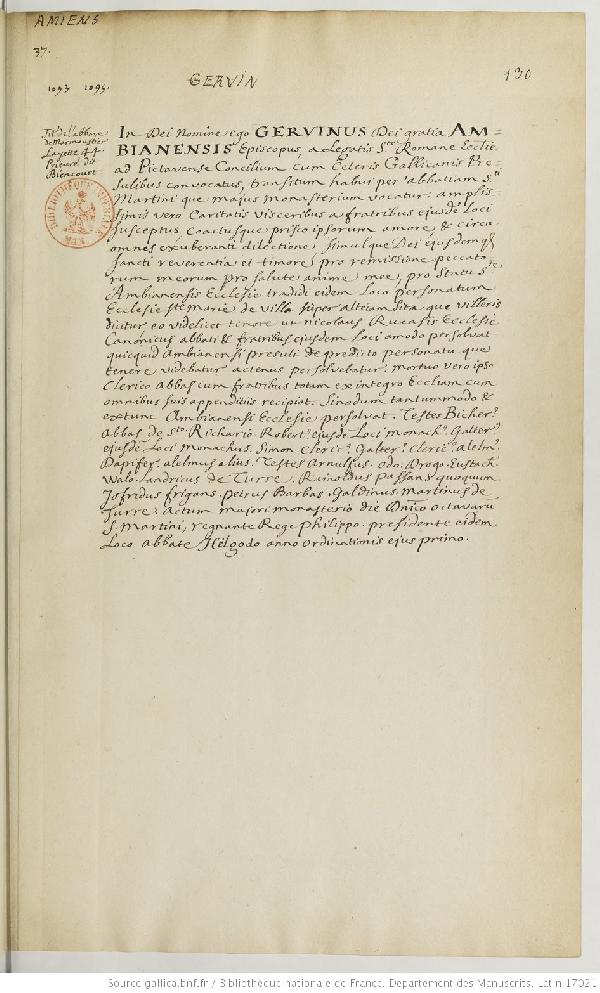 AMIENS
37.
130
1093 1095.
GERVIN
Tit. de l'abbaye
de Marmoustier
Layette 44
Prieuré de
Biencourt
BIBLIOTHEQUE IMPERIALE
MAN.
In Dei Nomine ego GERVINUS Dei gratia AM-
BIANENSIS Episcopus, a Legatis Ste Romane Ecclie
ad Pictavense Concilium cum Ceteris Gallicanis Pre-
sulibus convocatus, transitum habui per abbatiam Sti
Martini que majus Monasterium vocatur: amplis-
simis vero Caritatis visceribus a fratribus ejusde Loci
susceptus coactusque prisco ipsorum amore, & circa
omnes exuberanti dilectione, simulque Dei ejusdemq
sancti reverentia et timore, pro remissione peccato-
rum meorum pro salute anime mee, pro statu Ste
Ambianensis Ecclesie tradidi eidem Loco personatum
Ecclesie ste Marie de villa super alteiam sita que villeris
dicitur eo videlicet tenore ut nicolaus Rucensis Ecclesie
Canonicus abbati & fratribus ejusdem Loci amodo persolvat
quicquid Ambianensi presuli de predicto personatu que
tenere videbatur actenus persolvebatur. mortuo vero ipso
Clerico Abbas cum fratribus totam ex integro Eccliam cum
omnibus suis appenditiis recipiat. Sinodum tantummodo &
exetunc Ambianensi Ecclesie persolvat. Testes Bicher.
Abbas de sto Richario Robert. ejusde Loci monach. Galter.
ejusde Loci Monachus. Simon Cleric. Galber. Cleric. alelm.
Dapifer. alelmus alius. Testes Arnulfus. Odo. Drogo. Eustach.
Walo. Landricus de Turre. Rainoldus passans quoquum
Josfridus frigans. petrus Barbas. Galdinus. Martinus de
Turre. actum majori monasterio die Dnico octavaru
S. Martini, regnante Rege philippo. presidente eidem
Loco abbate Helgodo anno ordinationis ejus primo.
Source gallica.bnf.fr / Bibliothèque nationale de France. Département des Manuscrits. Latin 17021